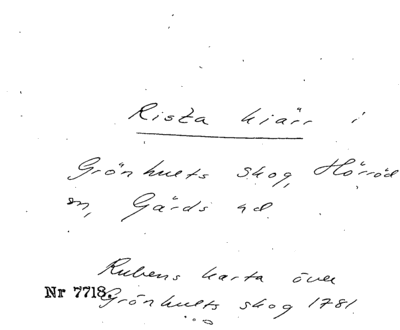 Rista kiärr i
Grönhults skog, Hörröd
sn, Gärds hd.
Rubens karta över
Nr 7718. Grönhults skog 1781.